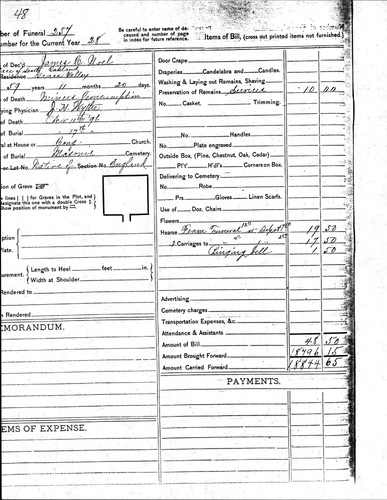 48
ber of Funeral 257
umber for the Current Year 28
Be careful to enter name of de-
ceased and number of page
in index for future reference.
Items of Bill, (cross out printed items not furnished.)
of Dec'd James C Noel
Residence Grass Valley
59 years 11 months 20 days.
of Death, Miners Consumption
ying Physician J. H.
of Death
of Burial 17th
al at House or Church.
of Burial Masonic Cemetery.
or Lot No. Native of Section No. England
ion of Grave
e lines | | | for Graves in the Plot, and
designate this one with a double Cross
Show position of monument by
ption
Plate.
urement. Length to Heel feet in.
Width at Shoulder
Rendered to
n Rendered to
EMORANDUM.
EMS OF EXPENSE.
Door Crape
Draperies Candelabra and Candles.
Washing & Laying out Remains, Shaving
Preservation of Remains Services 10 00
No. Casket. Trimming.
No. Handles
Plate engraved
Outside Box, (Pine, Chestnut, Oak, Cedar)
P'l'y H'd'l's Corners on Box.
Delivering to Cemetery
No. Robe
Pr. Gloves Linen Scarfs.
Use of Doz. Chairs
Flowers
Hearse From Funeral Depot 19 50
Carriages to 17 50
Ringing Bell 1 50
Advertising
Cemetery charges
Transportation Expenses, &c.
Attendance & Assistants
Amount of Bill 48 50
Amount Brought Forward 18796 15
Amount Carried Forward 18844 65
PAYMENTS.